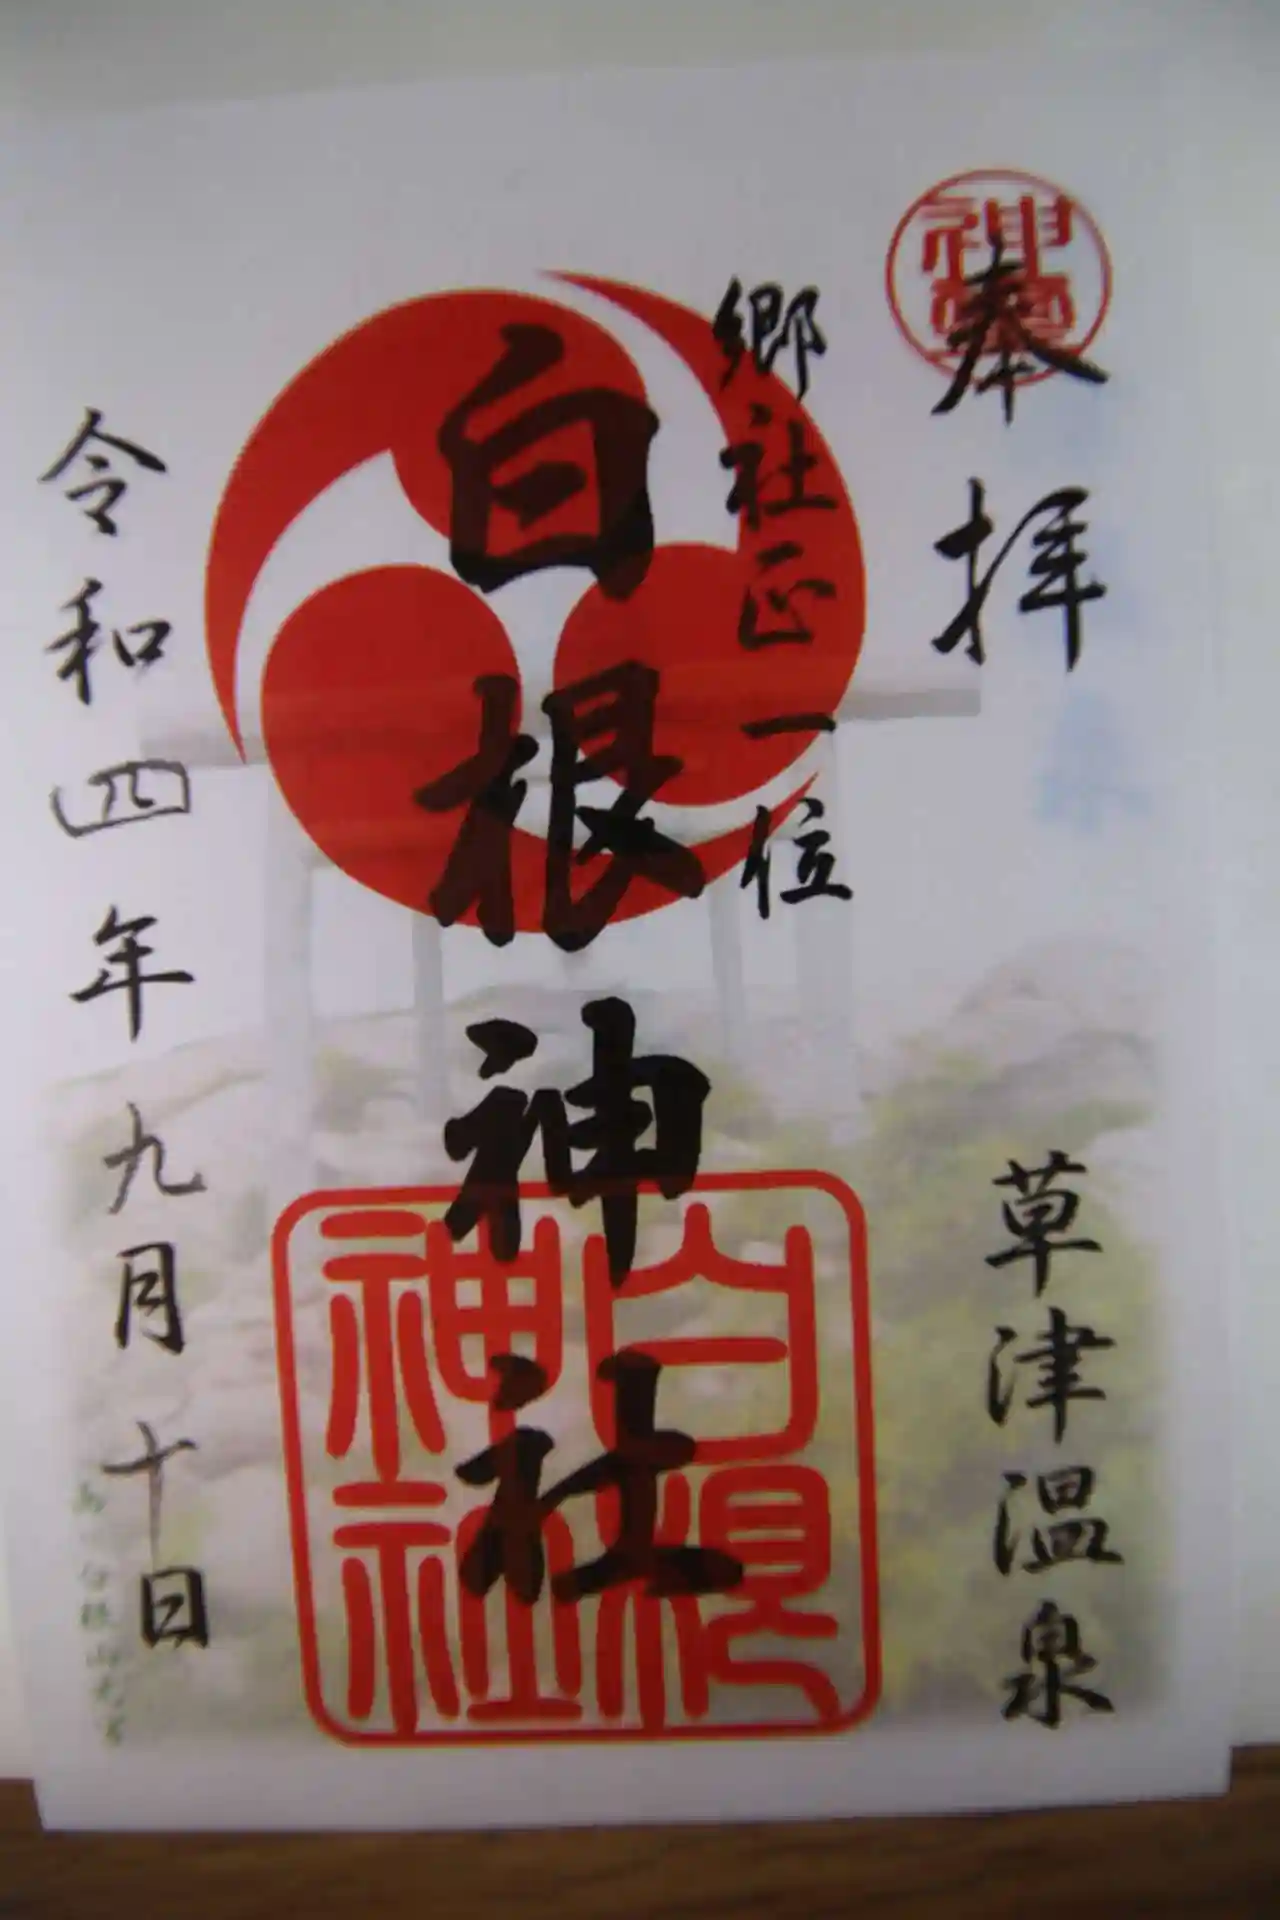 奉拝
草津温泉
郷社正一位
白根神社
白根
神社
令和四年九月十日